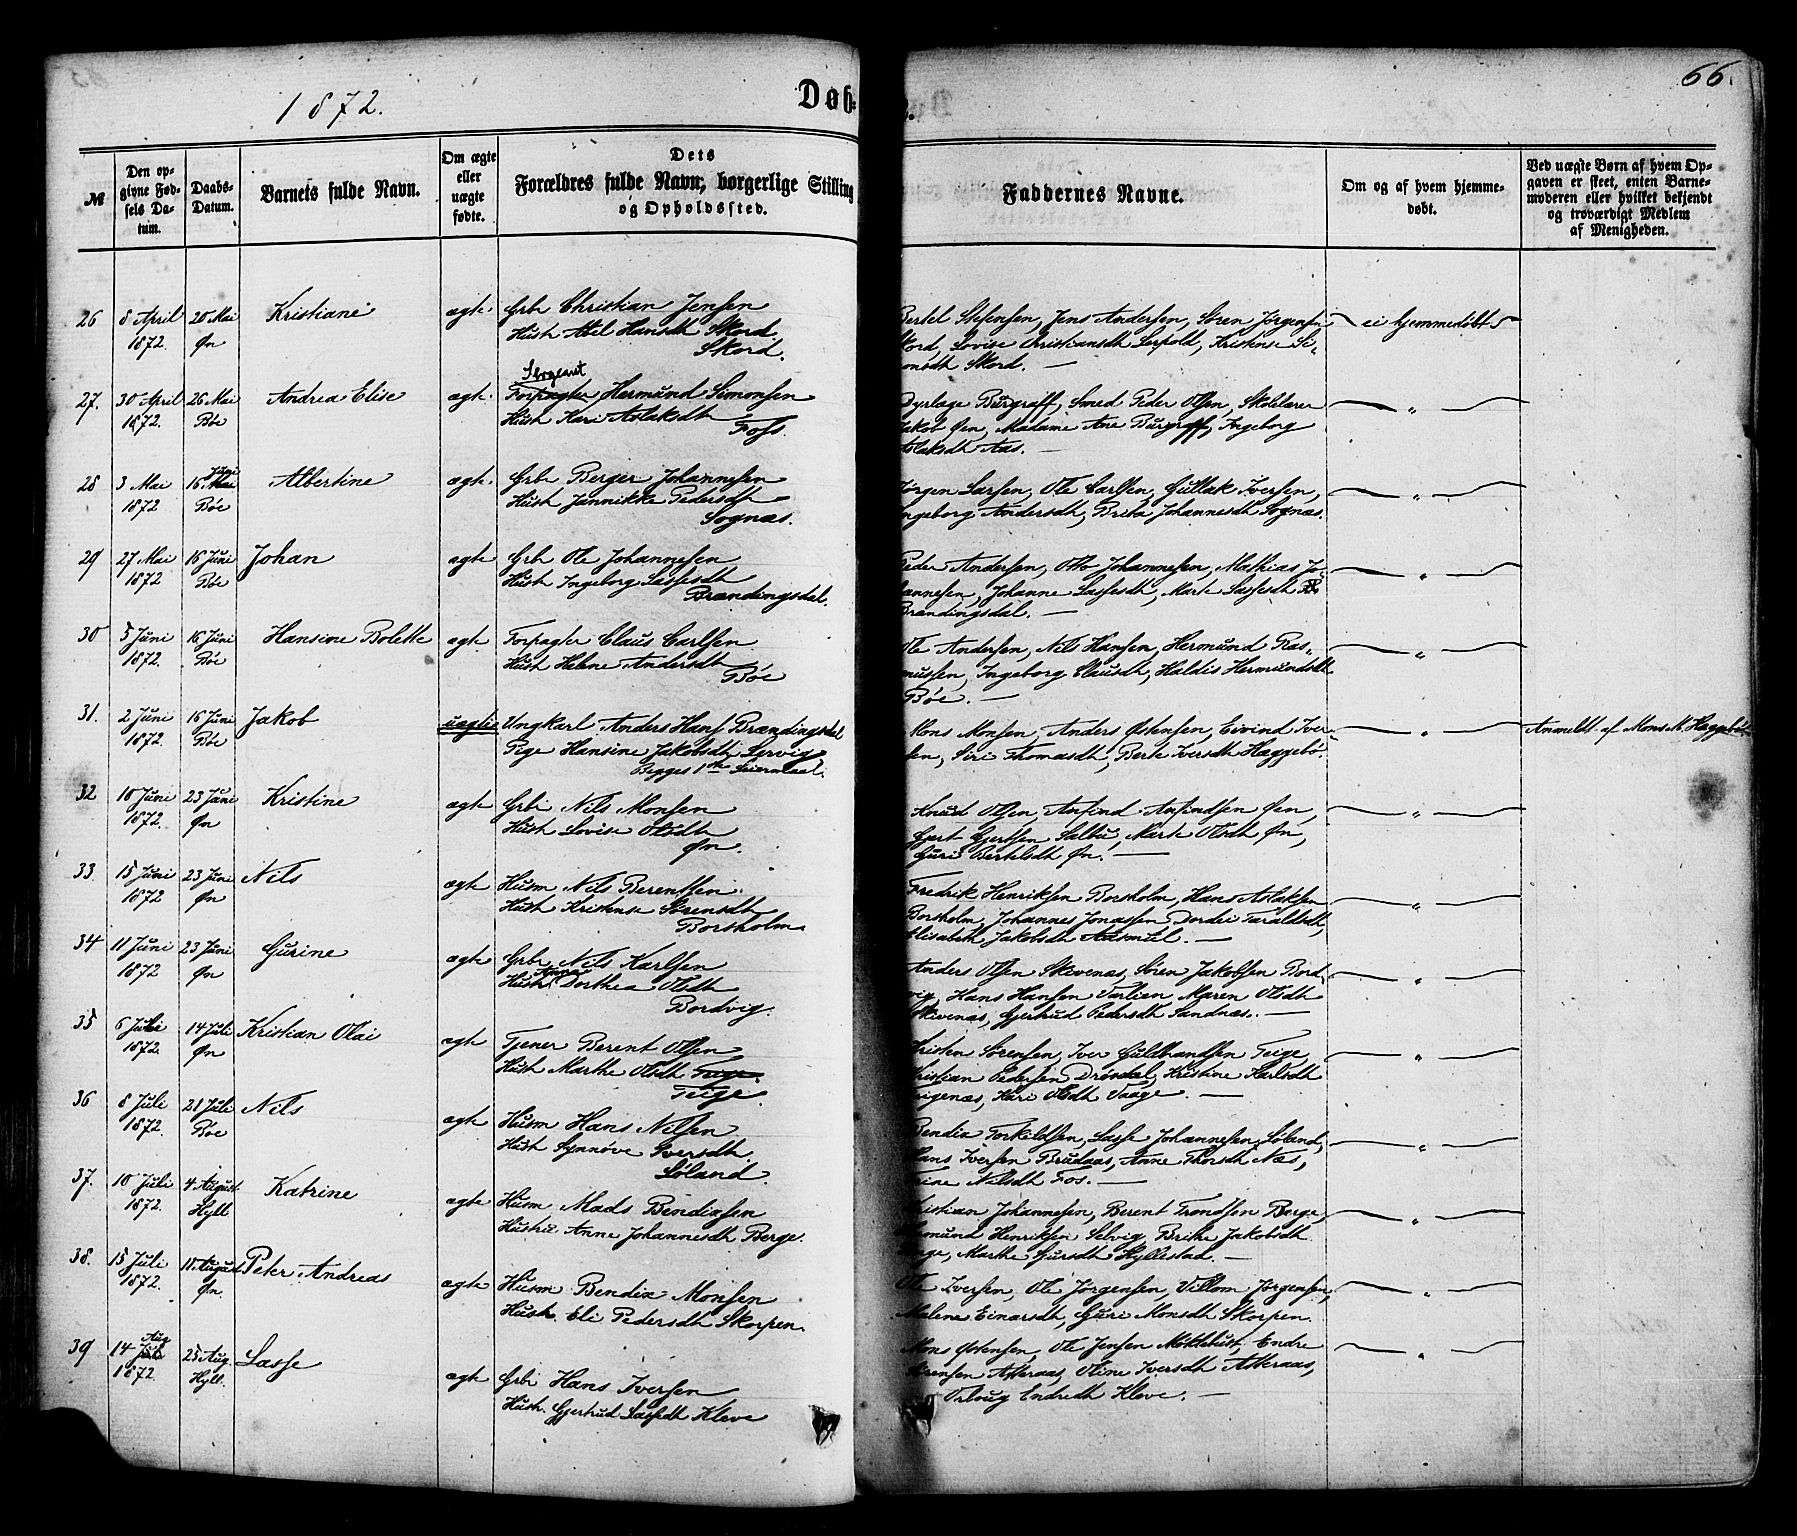 1872.
Døb-
66.
№
Den op-
givne Fød-
sels Da-
tum.
Daabs-
Datum.
Barnets fulde Navn.
Om ægte
eller
uægte
fødte.
Dets
Forældres fulde Navn, borgerlige Stilling
og Opholdssted.
Faddernes Navne.
Om og af hvem hjemme-
døbt.
Ved uægte Børn af hvem Op-
gaven er skeet, enten Barne-
moderen eller hvilket bekjendt
og troværdigt Medlem
af Menigheden.
26 8 April 20 Mai Kristiane ægte Grbr Christian Jensen
1872. Øn Hust Hansdtr Skord
Skord.
Jens Andersen, Søren Jørgensen ei hjemmedøbt
Skord, Lovise Christiansdtr Leepold, Kristense Si-
Skord.
Sergeant
27. 30 April 26 Mai Andrea Elise ægte. Forpagter Hermund Simonsen
1872. Bøe Hust Kari Aslaksdtr
Foss.
Dyrlæge Burgraff, Smed Peder Olsen, Skolelærer "
Jakob Øen, Madame Ane Burgraff, Ingeborg
Aslaksdtr Aas.
Juni
28 3 Mai 16 Mai Albertine ægte. Grbr Berger Johannesen
1872 Bøe Hust Jannikke Pedersdtr
Sognæs.
Jørgen Larsen, Ole Carlsen, Gullak Iversen, "
Ingeborg Andersdtr, Brita Johannesdtr Sognæs.
29 27 Mai 16 Juni Johan ægte Grbr Ole Johannesen
1872 Bøe Hust Ingeborg Lassesdtr
Brændingsdal.
Peder Andersen, Otto Johannesen, Mathias Jo- "
hannesen, Johanne Lassesdtr, Marte Lassesdtr
Brændingsdal.
30 5 Juni 16 Juni Hansine Bolette ægte Forpagter Claus Carlsen
1872. Bøe Hust Helene Andersdtr
Bøe
Ole Andersen, Nils Hansen, Hermund Ras- "
mussen, Ingeborg Clausdtr, Haldis Hermundsdtr
Bøe.
31. 2 Juni 16 Juni Jakob uægte Ungkarl Anders Hans. Brændingsdal
1872. Bøe Pige Hansine Jakobsdtr Servig
Begges 1ste Leiermaal.
Mons Monsen, Anders Østensen, Eivind Iver- " Anmeldt af Mons M. Hæggebø
sen, Siri Thomasdtr, Berte Iversdtr Hæggebø.
32 10 Juni 23 Juni Kristine ægte Grbr Nils Monsen
1872. Øn Hust Lovise Olsdtr
Øn.
Knud Olsen, Anfind Anfindsen Øen, "
Gjert Gjertsen Salbu, Marte Olsdtr Øn,
Guri Bertelsdtr Øn.
33. 15 Juni 23 Juni Nils ægte Husm Nils Berentsen
1872 Øn Hust Kristense Sørensdtr
Borsholm.
Fredrik Henriksen Borsholm, Hans Aslaksen "
Borsholm, Johannes Jonassen Dordei Taraldsdtr,
Elisabeth Jakobsdtr Aasmul.
34 11 Juni 23 Juni Gurine ægte Grbr Nils Karlsen
1872 Øn Hust Anna Dorthea Olsdtr
Bordvig.
Anders Olsen Skivenæs, Søren Jakobsen Bord- "
vig, Hans Hansen Varlien Maren Olsdtr
Skivenæs, Gjertrud Pedersdtr Sandnæs.
35 6 Juli 14 Juli Kristian Olai ægte Tjener Berent Olsen
1872. Øn Hust Marthe Olsdtr Teige.
Teige.
Kristen Sørensen, Iver Guldbrandsen Teige, "
Kristian Pedersen Drøsdal, Kristine Karlsdtr
Kari Olsdtr Vaage.
36 8 Juli 21 Juli Nils ægte Husm Hans Nilsen
1872. Bøe Hust Synnøve Iversdtr.
Søland.
Bendix Torkildsen, Lasse Johannesen Søland, "
Hans Iversen Brudaas, Anne Thorsdtr Næs,
Nilsdtr Fos.
37. 10 Juli 4 August Katrine ægte Husm Mads Bendixsen
1872. Hyll Hustr. Anne Johannesdtr Berge.
Kristian Johannesen, Berent Trondsen Berge, "
Henriksen Selvig, Brithe Jakobsdtr
Marthe Gursdtr Hyllestad.
38. 15 Juli 18 August Peter Andreas ægte Husm Bendix Monsen
1872. Øn. Hustr. Eli Pedersdtr Skorpen.
Ole Iversen, Ole Jørgensen, Villom Jørgensen, "
Malene Einarsdtr, Guri Monsdtr Skorpen.
Aug
39 14 Juli 25 Aug. Lasse ægte Grbr Hans Iversen
1872. Hyll. Hustr. Gjertrud Lassedtr Kleve
Mons Østensen, Ole Jensen Myklebust, Endre "
Sørensen Asteraas, Oline Iversdtr Asteraas,
Endredtr Kleve.